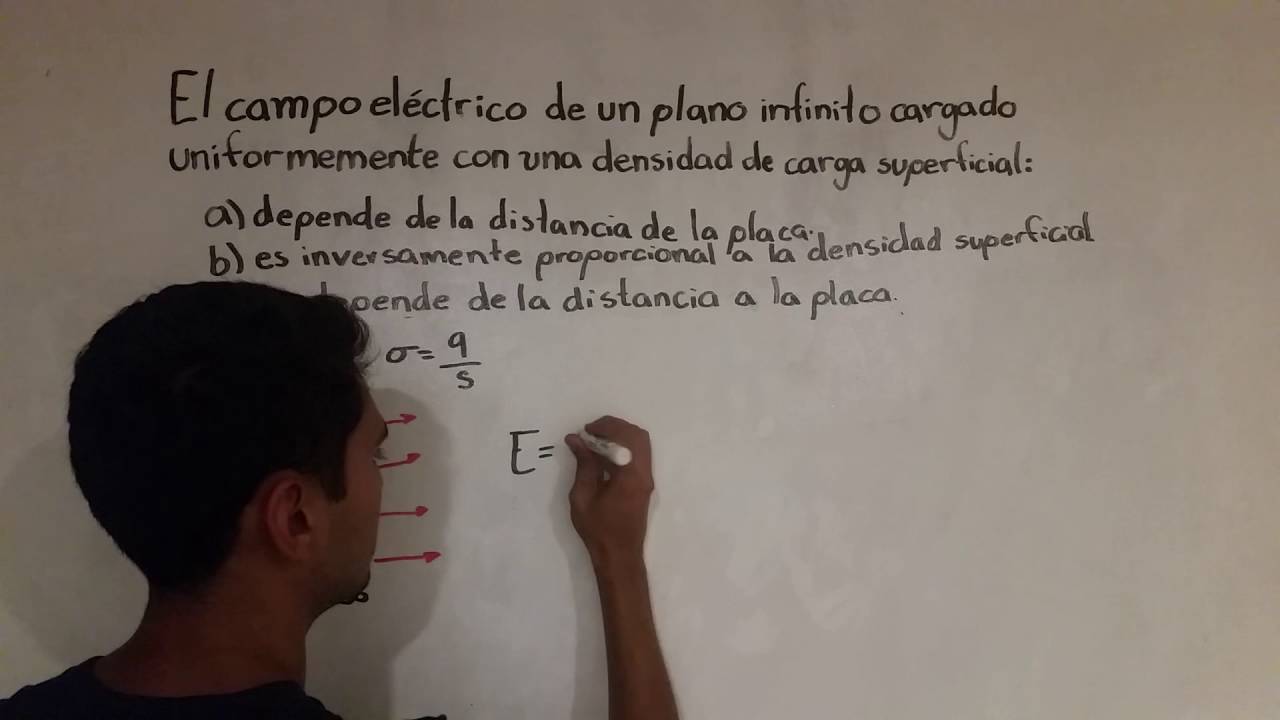 El campo eléctrico de un plano infinito cargado
uniformemente con una densidad de carga superficial:
a) depende de la distancia de la placa.
b) es inversamente proporcional a la densidad superficial
de la distancia a la placa.
σ = q/s
E =